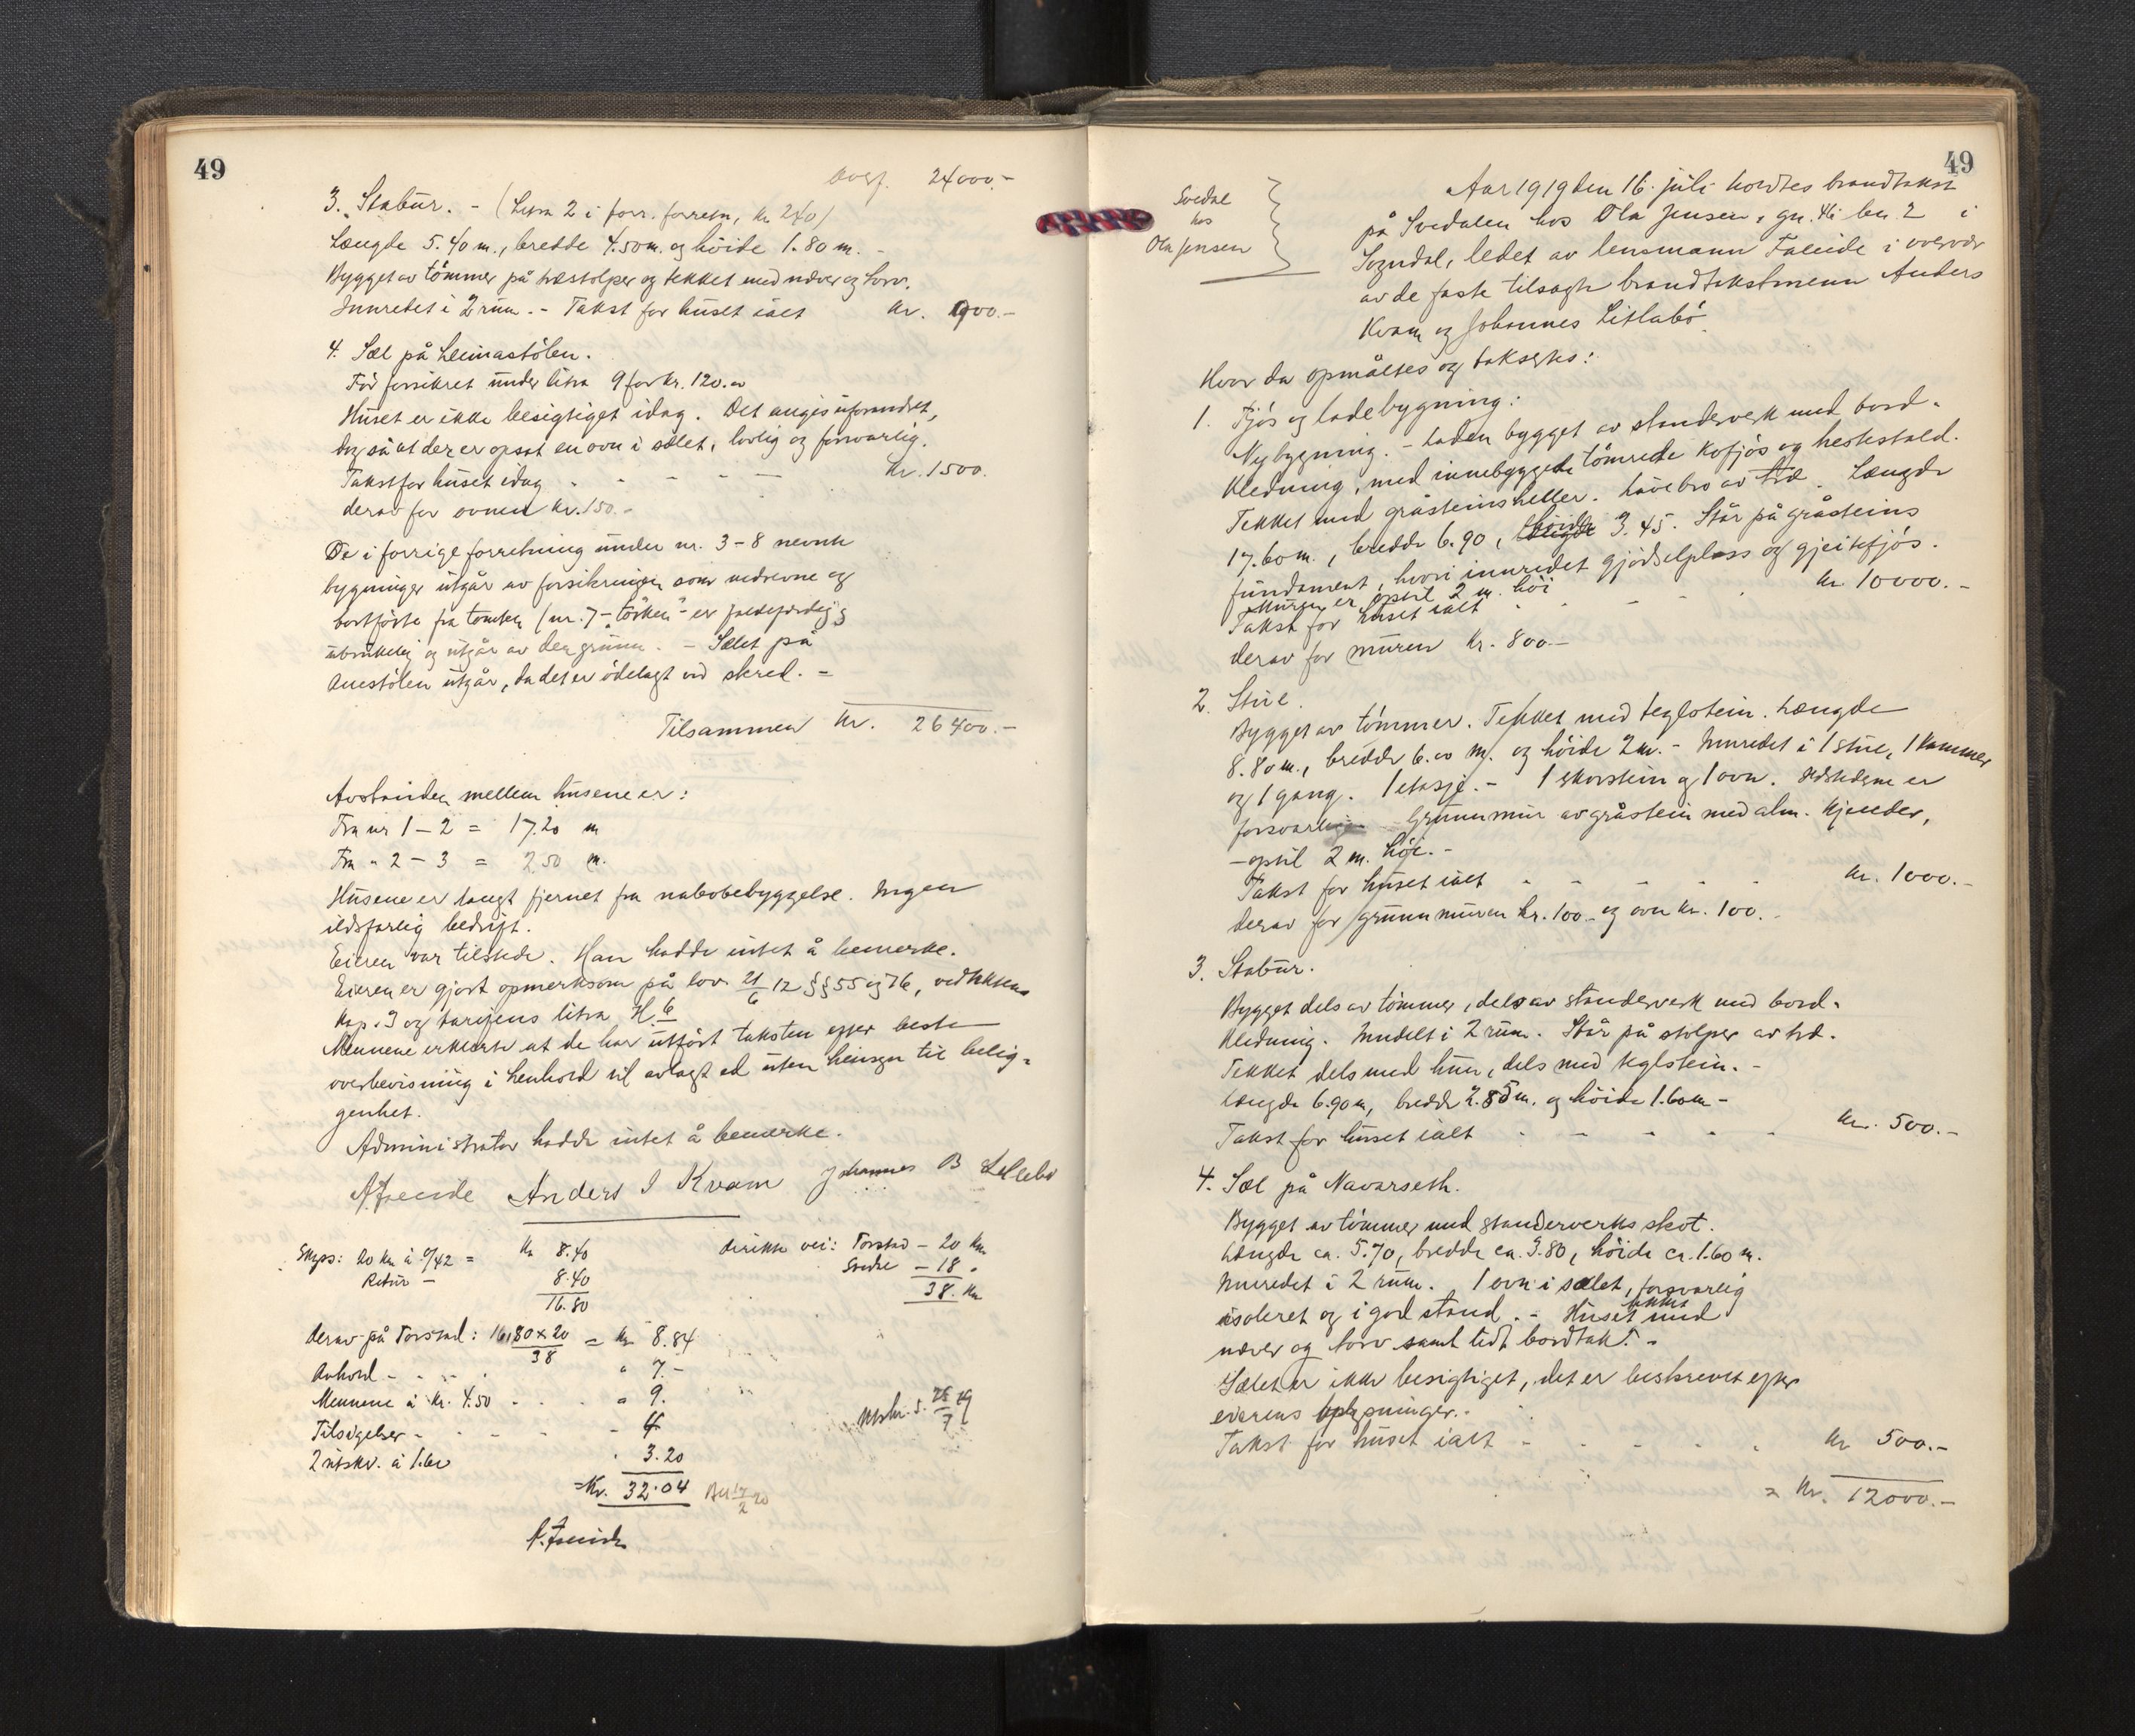 49
Overf. 24000.-
3. Stabur. - (Litra 2 i forr. forretn, kr 240)
Længde 5.40 m., bredde 4.50 m. og høide 1.80 m. -
Bygget av tømmer på træstolper og tekket med næver og torv.
Innredet i 2 rum. - Takst for huset ialt kr. 900.-
4. Sæl på Heimastølen.
Før forsikret under litra 9 for kr. 120.00
Huset er ikke besigtiget idag. Det angis uforandret,
dog så at der er opsat en ovn i sælet, lovlig og forsvarlig.
Takst for huset idag - - - - - Kr. 1500.
derav for ovnen kr. 150.-
De i forrige forretning under nr. 3-8 nevnte
bygninger utgår av forsikringen som nedrevne og
bortførte fra tomten (nr. 7 - "tørken" - er faldefærdig og
ubrukelig og utgår av den grunn. - Sælet på
Anestølen utgår, da det er ødelagt ved skred. -
Tilsammen Kr. 26400.-
Avstanden mellem husene er:
Fra nr 1 - 2 = 17.20 m
Fra " 2 - 3 = 2.50 m.
Husene er langt fjernet fra nabobebyggelse. Ingen
ildsfarlig bedrift.
Eieren var tilstede. Han hadde intet å bemerke.
Eieren er gjort opmerksom på lov 21/6 12 §§ 55 og 76, vedtektens
kap. 3 og tarifens litra H. 6
Mennene erklærte at de har utført taksten efter beste
overbevisning i henhold til avlagt ed uten hensyn til belig-
genhet.
Administrator hadde intet å bemerke.
A. Faleide Anders I Kvam Johannes B Litlebø
Skyss: 20 km à 0/42 = Kr 8.40
Retur - 8.40
16.80
direkte vei: Torstad - 20 km
Svedal - 18 "
38. km
Derav på Torstad: 16,80 x 20 / 38 = Kr 8.84
Avhold - - - - " 7.-
Mennene à kr. 4.50 - - - " 9.
Tilsigelser - - - - - 4
2 utskr. à 1.60 " 3.20
= Kr. 32.04 Bet 17/2 20
Utskr. s. 28/7 19
A. Faleide
49
Svedal
hos
Ola Jensen
Aar 1919 den 16. juli holdtes brandtakst
på Svedalen hos Ola Jensen, gn. 46 bn. 2 i
Sogndal, ledet av lensmann Faleide i overvær
av de faste tilsagte brandtakstmenn Anders
Kvam og Johannes Litlabø.
Hvor da opmåltes og taksertes:
1. Fjøs og ladebygning:
Nybygning. - Laden bygget av standerverk med bord-
kledning, med innebygget tømrede kofjøs og hestestald.
Tekket med gråsteinsheller. Låvebro av træ. Længde
17.60 m., bredde 6.90, høide 3.45. Står på gråsteins
fundament, hvori innredet gjødselplass og gjeitefjøs.
Muren er optil 2 m. høi
Takst for huset ialt - - - - kr. 10000.-
derav for muren kr. 800.-
2. Stue.
Bygget av tømmer. Tekket med teglstein. Længde
8.80 m., bredde 6.00 m. og høide 2 m. - Innredet i 1 stue, 1 kammer
og 1 gang. 1 etasje. - 1 skorstein og 1 ovn. Ildstederne er
forsvarlige. Grunnmur av gråstein med alm. kjender,
- optil 2 m. høi. -
Takst for huset ialt - - - - - kr. 1000.-
derav for grunnmuren kr. 100.- og ovn kr. 100.-
3. Stabur.
Bygget dels av tømmer, dels av standerverk med bord-
kledning. Inndelt i 2 rum. Står på stolper av træ.
Tekket dels med hun, dels med teglstein. -
Længde 6.90 m, bredde 2.85 m. og høide 1.60 m -
Takst for huset ialt - - - - - kr. 500.-
4. Sæl på Navarseth.
Bygget av tømmer med standerverks skot.
Længde ca. 5.70, bredde ca. 3.80, høide ca. 1.60 m.
Innredet i 2 rum. 1 ovn i sælet, forsvarlig
isoleret og i god stand. - Huset tekket med
næver og torv samt tidt bordtak. -
Sælet er ikke besigtiget, det er beskrevet efter
eierens oplysninger. -
Takst for huset ialt - - - - - kr 500.-
= Kr. 12000.-